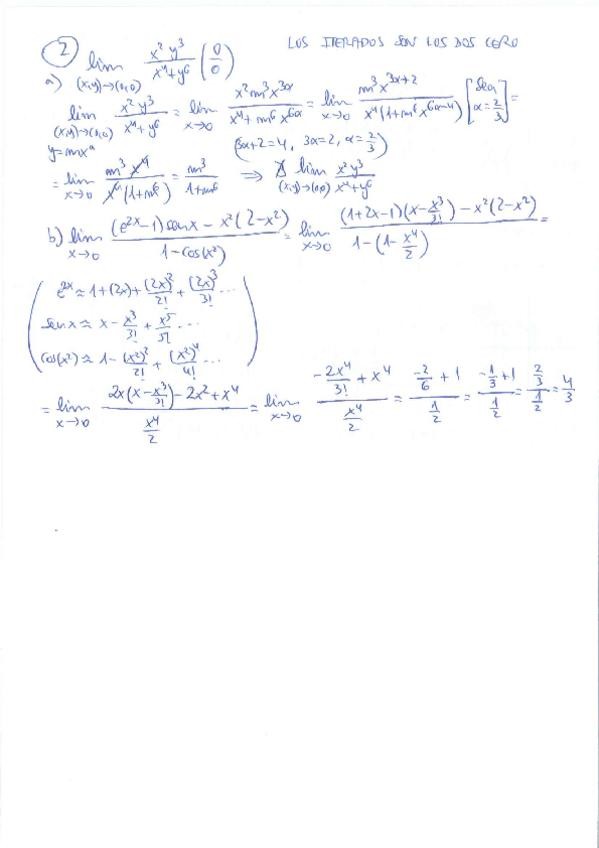 2 lim x² y³ / x⁴+y⁶ (0/0) LOS ITERADOS SON LOS DOS CERO
a) (x,y)→(0,0)
lim (x,y)→(0,0) y=mx^α x² y³ / x⁴+y⁶ = lim x→0 x² m³ x^3α / x⁴+m⁶ x^6α = lim x→0 m³ x^3α+2 / x⁴(1+m⁶ x^6α-4) [Sea α=2/3] =
(3α+2=4, 3α=2, α=2/3)
= lim x→0 m³ x⁴ / x⁴(1+m⁶) = m³ / 1+m⁶ ⇒ ∄ lim (x,y)→(0,0) x² y³ / x⁴+y⁶
b) lim x→0 (e^2x-1) sen x - x²(2-x²) / 1-cos(x²) = lim x→0 (1+2x-1)(x-x³/3!) - x²(2-x²) / 1-(1-x⁴/2) =
( e^2x ≈ 1+(2x)+(2x)²/2!+(2x)³/3! ...
sen x ≈ x-x³/3!+x⁵/5! ...
cos(x²) ≈ 1-(x²)²/2!+(x²)⁴/4! ... )
= lim x→0 2x(x-x³/3!)-2x²+x⁴ / x⁴/2 = lim x→0 -2x⁴/3!+x⁴ / x⁴/2 = -2/6+1 / 1/2 = -1/3+1 / 1/2 = 2/3 / 1/2 = 4/3